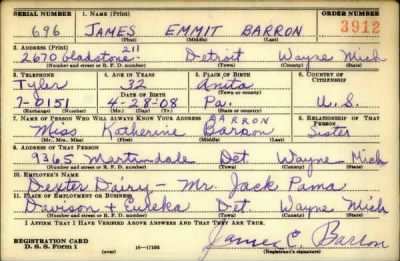 SERIAL NUMBER 1. NAME (Print) ORDER NUMBER
696 JAMES EMMIT BARRON 3912
(First) (Middle) (Last)
2. ADDRESS (Print)
211
2670 Gladstone Detroit Wayne Mich
(Number and street or R. F. D. number) (Town) (County) (State)
3. TELEPHONE 4. AGE IN YEARS 5. PLACE OF BIRTH 6. COUNTRY OF CITIZENSHIP
Tyler 32 Anita
DATE OF BIRTH (Town or county)
7-0151 4-28-08 Pa. U.S.
(Exchange) (Number) (Mo.) (Day) (Yr.) (State or country)
7. NAME OF PERSON WHO WILL ALWAYS KNOW YOUR ADDRESS 8. RELATIONSHIP OF THAT PERSON
BARRON
Miss Katherine Barron Sister
(Mr., Mrs., Miss) (First) (Middle) (Last)
9. ADDRESS OF THAT PERSON
9365 Martindale Det. Wayne Mich
(Number and street or R. F. D. number) (Town) (County) (State)
10. EMPLOYER'S NAME
Dexter Dairy - Mr. Jack Pama
11. PLACE OF EMPLOYMENT OR BUSINESS
Davison + Eureka Det. Wayne Mich
(Number and street or R. F. D. number) (Town) (County) (State)
I AFFIRM THAT I HAVE VERIFIED ABOVE ANSWERS AND THAT THEY ARE TRUE.
REGISTRATION CARD
D. S. S. Form 1 (over) 16-17105 James E. Barron
(Registrant's signature)